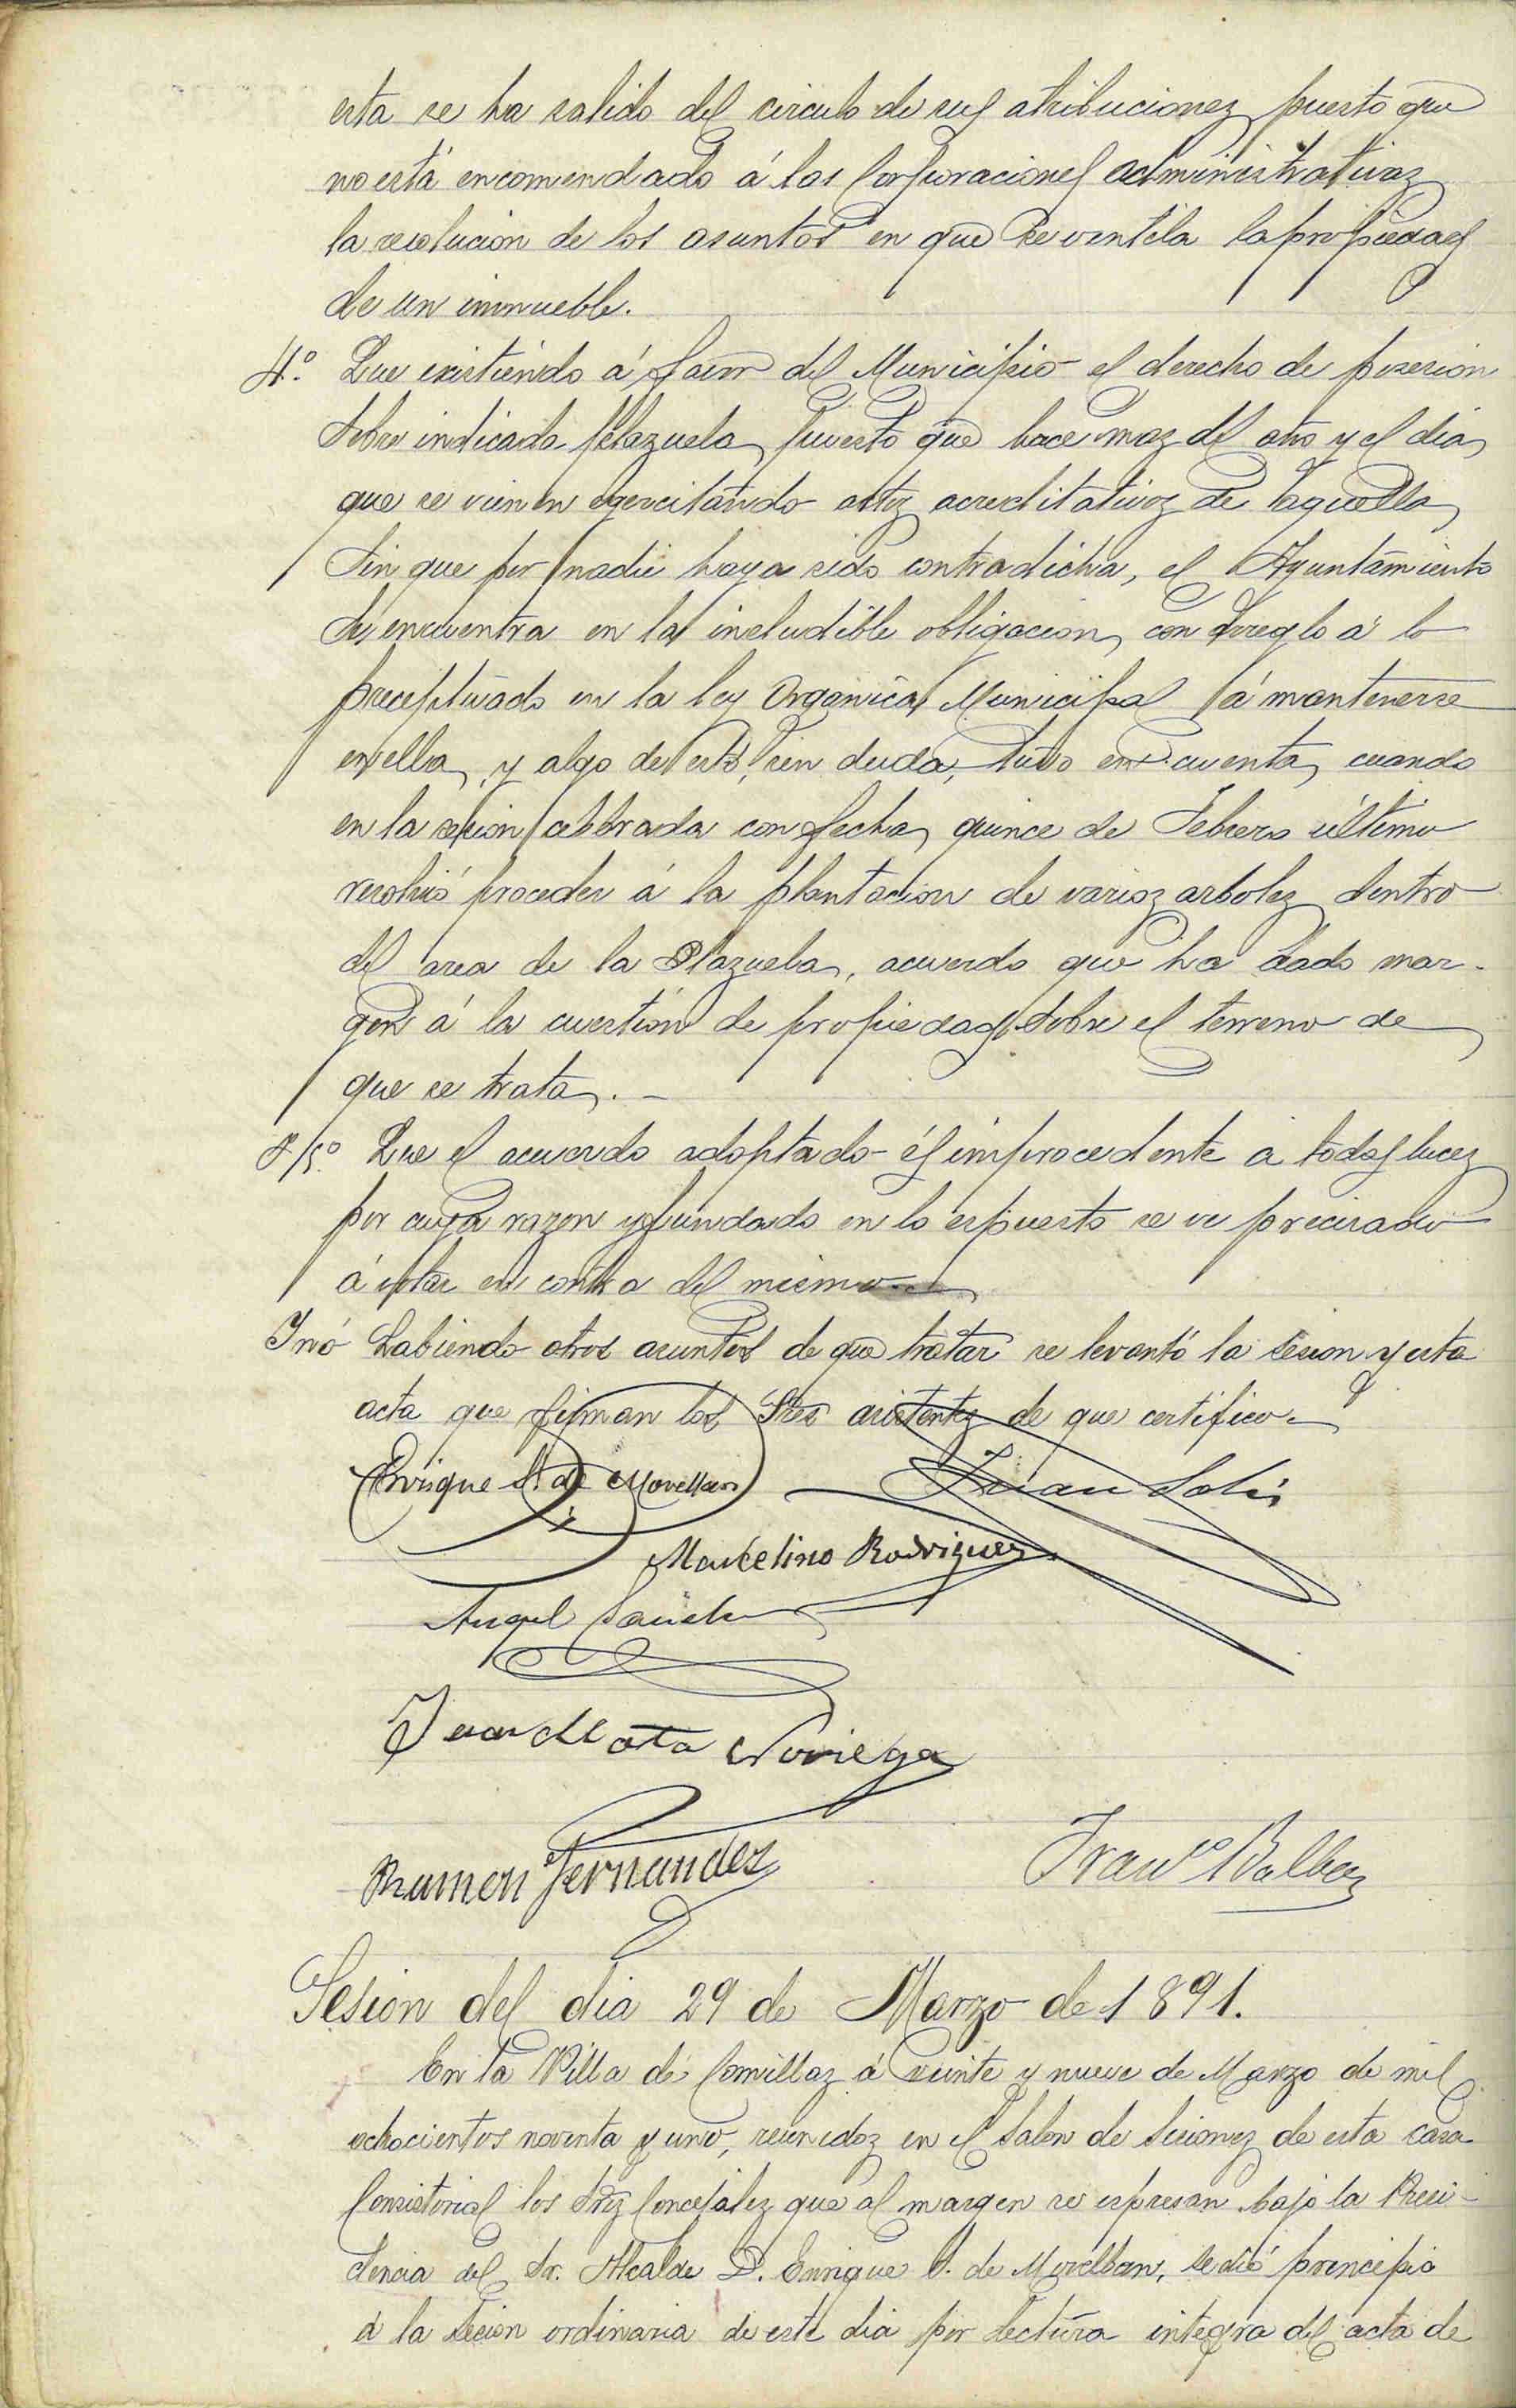 esta se ha salido del circulo de sus atribuciones puesto que
no está encomendado á las Corporaciones administrativas
la resolucion de los asuntos en que se ventila la propiedad
de un inmueble.
4.º Que existiendo á favor del Municipio el derecho de posesion
sobre indicada plazuela, puesto que hace mas del año y el dia,
que se vienen egercitando actos acreditativos de aquella,
sin que por nadie haya sido contradicha, el Ayuntamiento
se encuentra en la ineludible obligacion, con arreglo á lo
preceptuado en la ley Organica Municipal á mantenerse
en ella, y algo de esto, sin duda, tuvo en cuenta, cuando
en la sesion celebrada con fecha, quince de Febrero último
resolvió proceder á la plantacion de varios arboles dentro
del area de la Plazuela, acuerdo que ha dado mar-
gen á la cuestión de propiedad sobre el terreno de
que se trata.
5.º Que el acuerdo adoptado és improcedente á todas luces
por cuya razon y fundado en lo espuesto se ve precisado
á votar en contra del mismo.
Y nó habiendo otros asuntos de que tratar se levantó la sesion y esta
acta que firman los Sres asistentes de que certifico.
Enrique S. de Movellan Juan Solis
Marcelino Rodriguez
Angel Sanchez
Juan Mata Noriega
Ramon Fernandez Franco Balbas
Sesion del dia 29 de Marzo de 1891.
En la Villa de Comillas á veinte y nueve de Marzo de mil
ochocientos noventa y uno, reunidos en el Salon de sesiones de esta casa
Consistorial los Sres Concejales que al margen se espresan bajo la Presi-
dencia del Sr. Alcalde D. Enrique S. de Movellan, se dió principio
á la sesion ordinaria de este dia por lectura integra del acta de